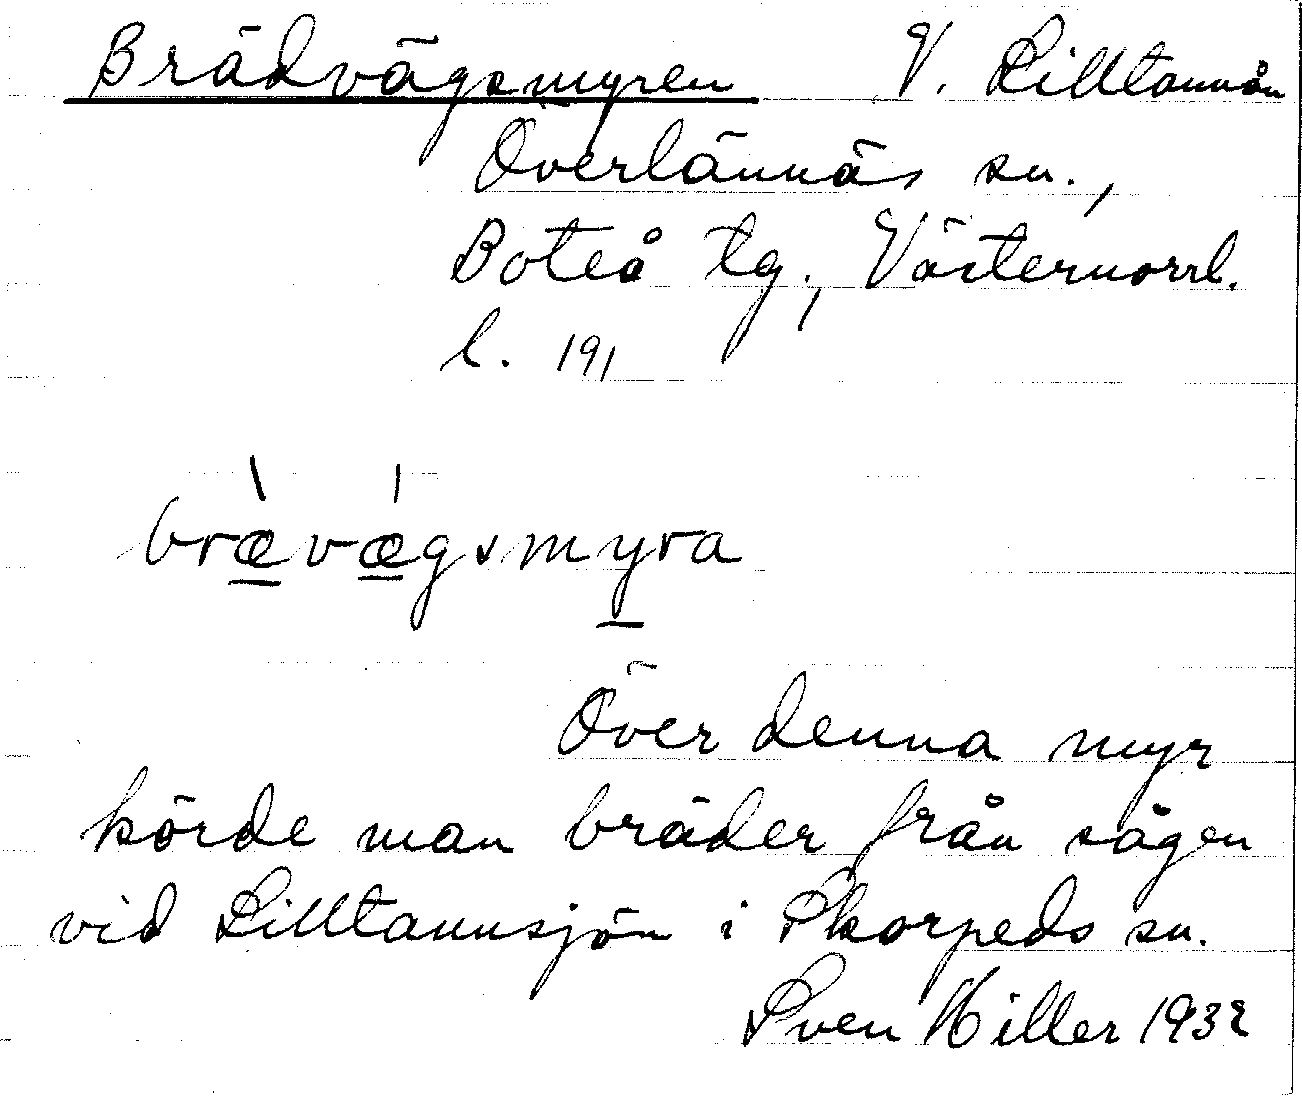 Brädvägsmyren V. Lilltannån
Överlännäs sn.,
Boteå tg., Västernorrl.
l. 191
brævægsmyra
Över denna myr
körde man bräder från sågen
vid Lilltannsjön i Skorpeds sn.
Sven Hiller 1932